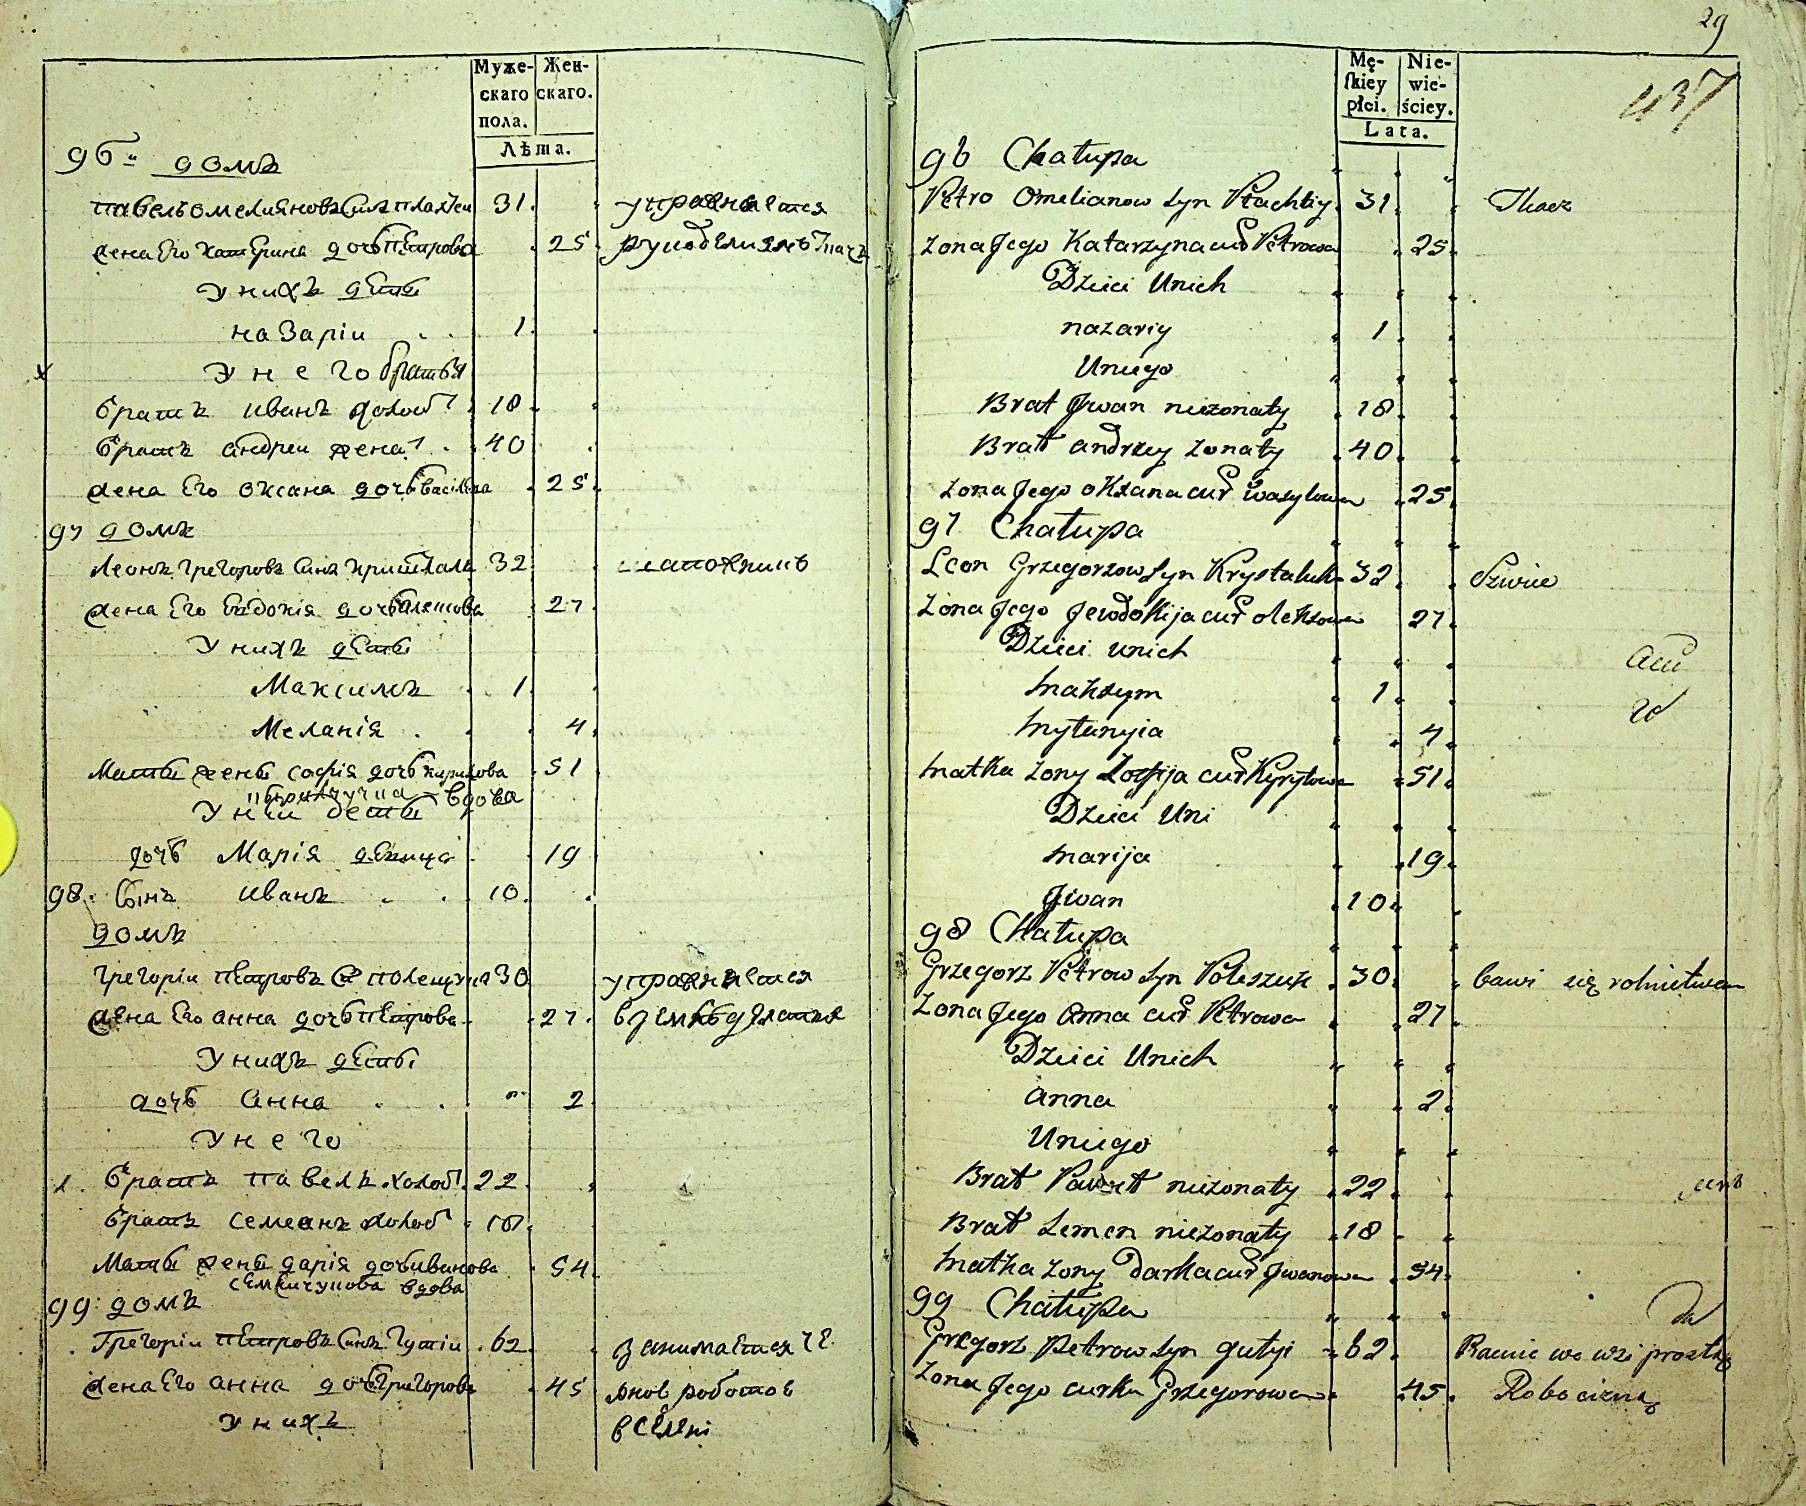 Муже-
скаго
пола.
Жен-
скаго.
Лѣта.
96 домъ
павелъ омелияновъ Синъ плахтеи 31 упражняется
жена Его катерина дочь пЕтрова 25 рукодЕлиямъ ткачъ
У нихъ дЕти
наЗаріи 1
У него братья
братъ иванъ холост 18
братъ андреи женат 40
жена Его оксана дочь василева 25
97 домъ
Леонъ григоровъ Синъ 32
жена Его Евдокія дочь 27
У нихъ дЕти
Максимъ 1
Меланія 4
Мать жены софія дочь кирилова 51
вдова
У неи дети
дочь Марія дЕвица 19
98. Сынъ иванъ 10
домъ
григоріи пЕтровъ С полещукъ 30 упражняется
жена Его анна дочь пЕтрова 27 в земледелатие
У нихъ дЕти
дочь Анна 2
У него
1. братъ павелъ холост 22
братъ семеанъ холост 18
Мать жены дарія дочь иванова 54
вдова
99 домъ
Григоріи пЕтровъ Синъ Гутіи 62 занимается
жена Его анна дочь григорова 45 роботов
У нихъ в сЕлені
29
Mę-
skiey
płci.
Nie-
wie-
ściey.
Lata.
437
96 Chałupa
Petro Omelianow Syn Płachtiy 31 Tkacz
Zona Jego Katarzyna cur Petrowa 25
Dzieci Unich
nazariy 1
Uniego
Brat Jwan niezonaty 18
Brat andrzey zonaty 40
Zona Jego oksana cur wasylowa 25
97 Chałupa
Leon Grzegorzow Syn Krystaluk 32 Szwiec
Zona Jego Jewdokija cur olexowa 27
Dzieci unich
Maksym 1
Mylanyia 4
Matka zony Zofija cur Kyryłowa 51
Dzieci Uni
Marija 19
Jwan 10
98 Chałupa
Grzegorz Petrow Syn Poleszuk 30 bawi się rolnictwem
Zona Jego anna cur Petrowa 27
Dzieci Unich
anna 2
Uniego
Brat Paweł niezonaty 22
Brat Semen niezonaty 18
Matka zony Darka cur Jwanowa 54
99 Chałupa
Grzegorz Petrow Syn gutyi 62 we wsi prostą
Zona Jego curka Grzegorowa 45 Robocizną